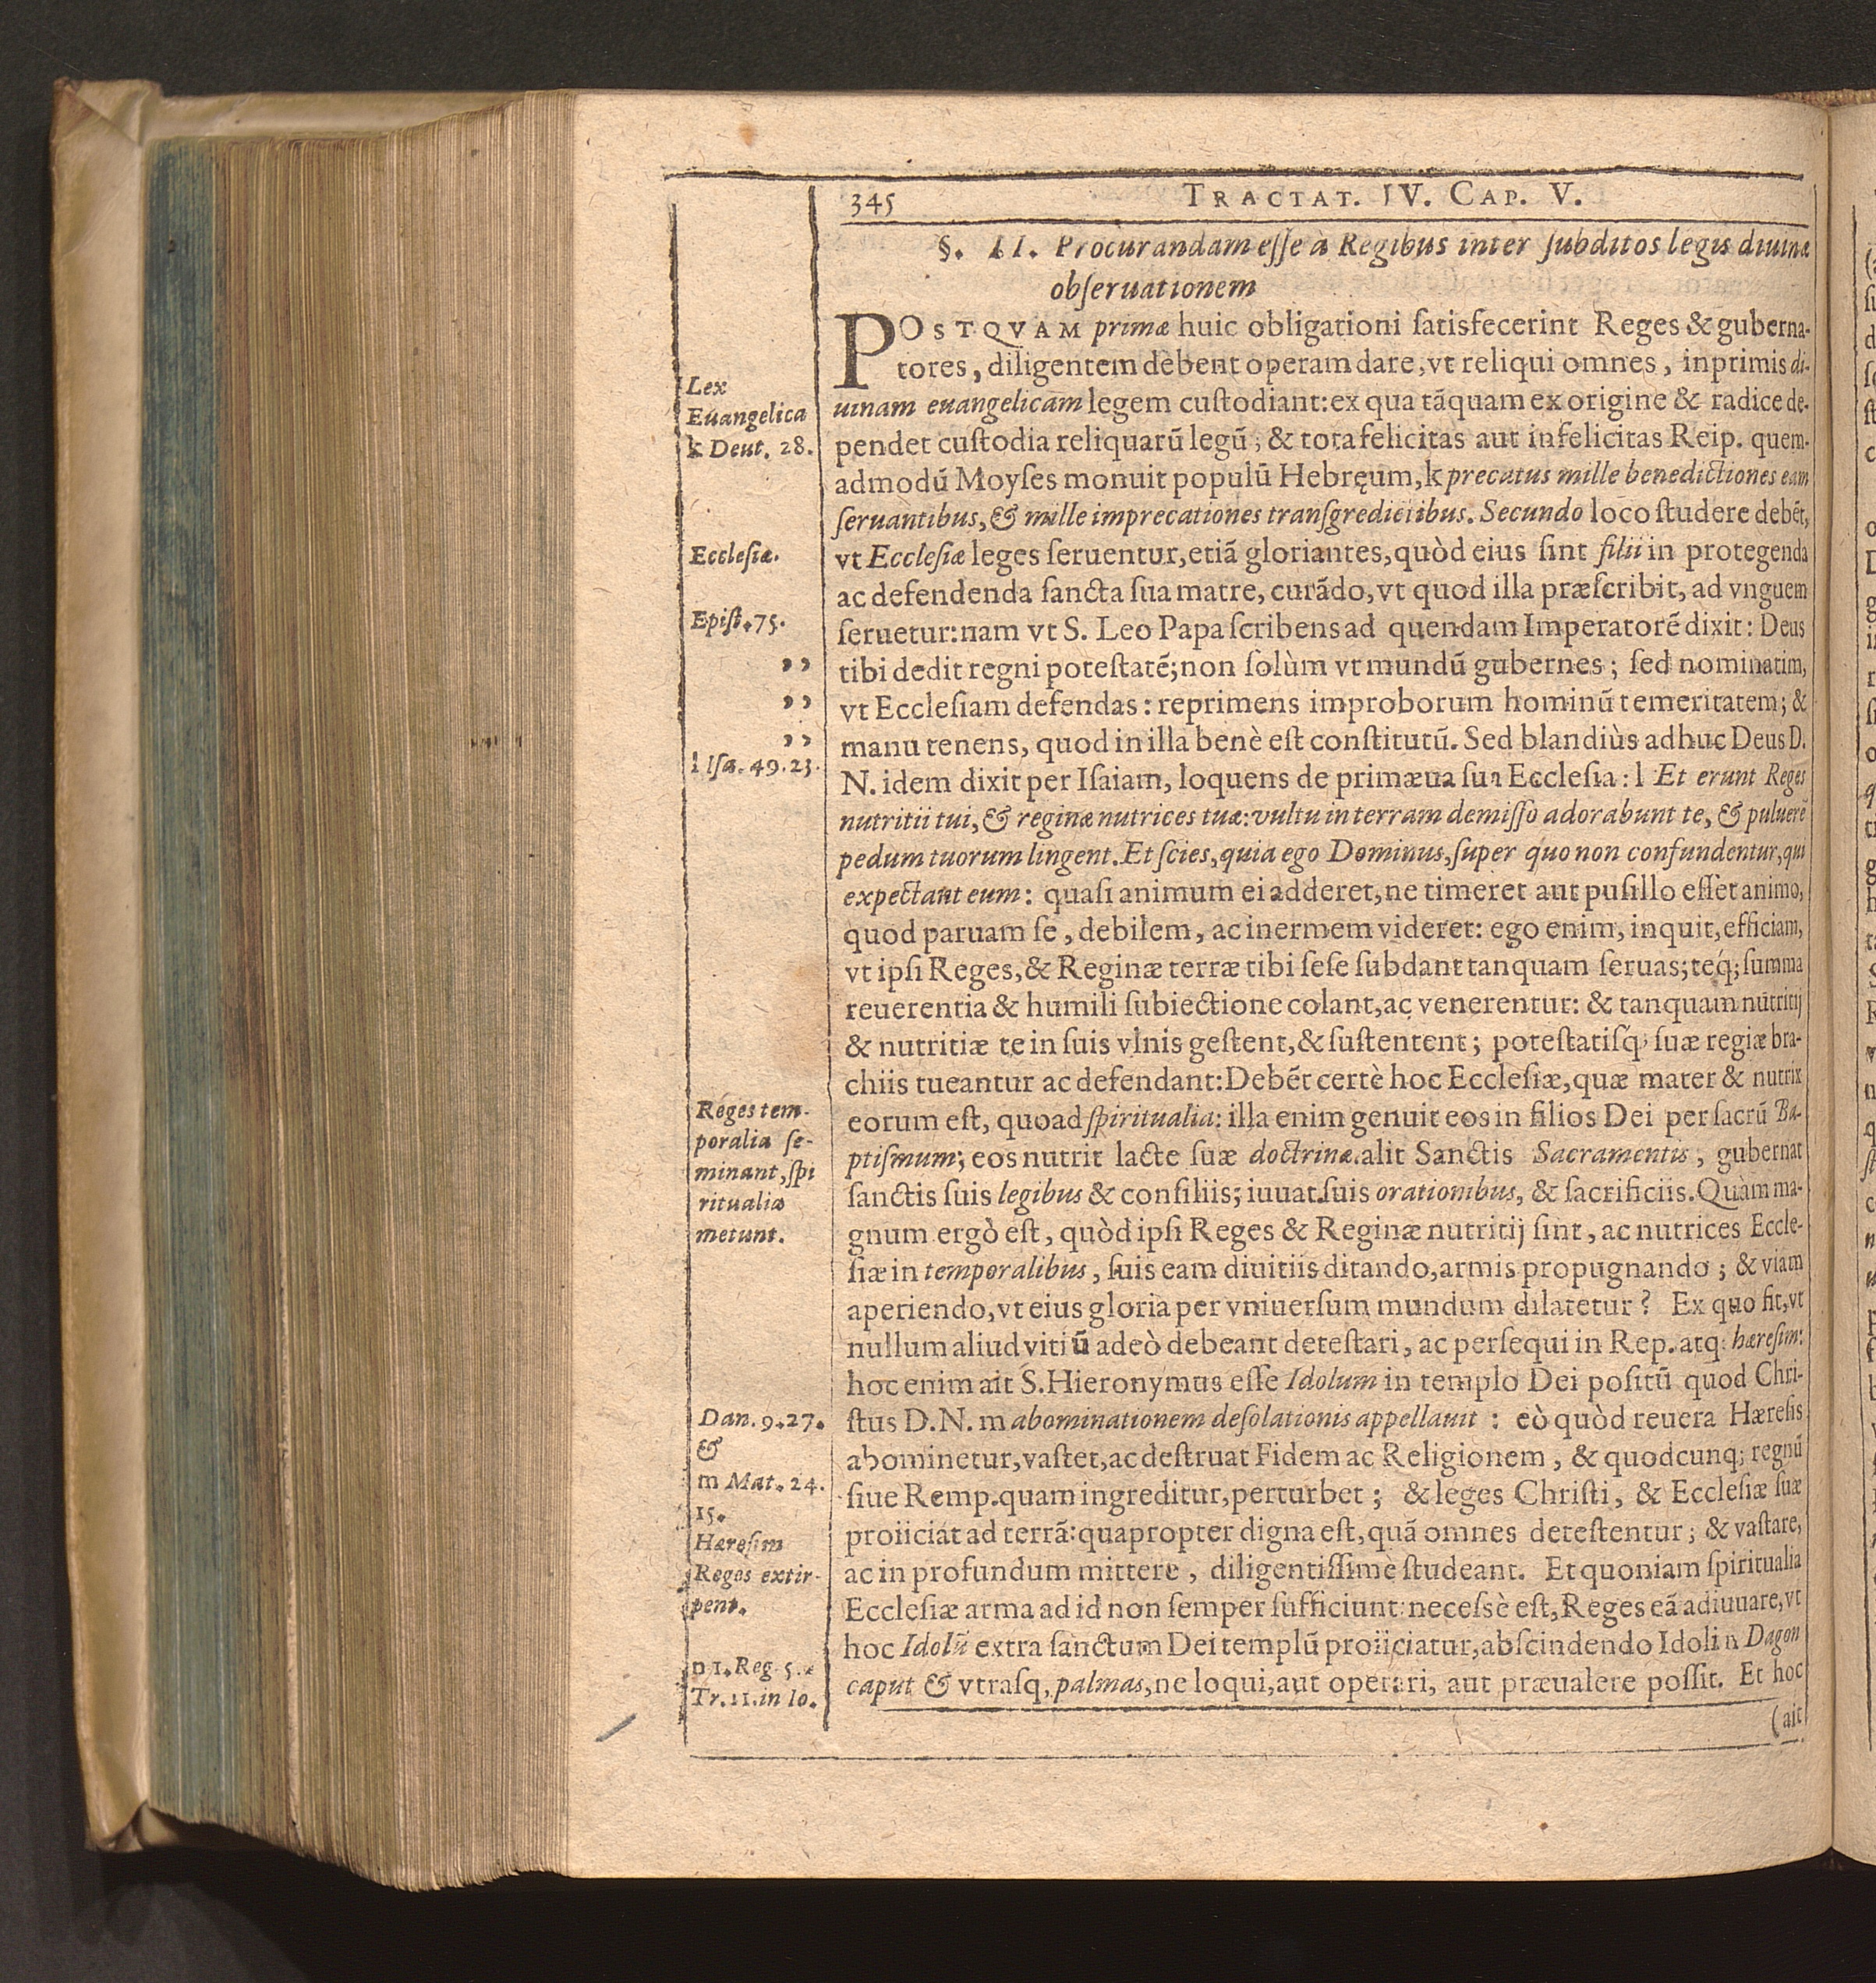 345 TRACTAT. IV. CAP. V.
§. II. Procurandam eſſe à Regibus inter ſubditos legis diuinæ
obſeruationem
POSTQVAM primæ huic obligationi ſatisfecerint Reges & guberna-
tores, diligentem debent operam dare, vt reliqui omnes, inprimis di-
uinam euangelicam legem cuſtodiant: ex qua tãquam ex origine & radice de-
pendet cuſtodia reliquarũ legũ, & tota felicitas aut infelicitas Reip. quem-
admodũ Moyſes monuit populũ Hebręum, k precatus mille benedictiones eam
ſeruantibus, & mille imprecationes tranſgredietibus. Secundo loco ſtudere debẽt,
vt Eccleſiæ leges ſeruentur, etiã gloriantes, quòd eius ſint filii in protegenda
ac defendenda ſancta ſua matre, curãdo, vt quod illa præſcribit, ad vnguem
ſeruetur: nam vt S. Leo Papa ſcribens ad quendam Imperatorẽ dixit: Deus
tibi dedit regni poteſtatẽ; non ſolùm vt mundũ gubernes; ſed nominatim,
vt Eccleſiam defendas: reprimens improborum hominũ temeritatem; &
manu tenens, quod in illa benè eſt conſtitutũ. Sed blandiùs adhuc Deus D.
N. idem dixit per Iſaiam, loquens de primæua ſua Eccleſia: l Et erunt Reges
nutritii tui, & reginæ nutrices tuæ: vultu in terram demiſſo adorabunt te, & puluerẽ
pedum tuorum lingent. Et ſcies, quia ego Dominus, ſuper quo non confundentur, qui
expectant eum: quaſi animum ei adderet, ne timeret aut puſillo eſſèt animo,
quod paruam ſe, debilem, ac inermem videret: ego enim, inquit, efficiam,
vt ipſi Reges, & Reginæ terræ tibi ſeſe ſubdant tanquam ſeruas; teq́; ſumma
reuerentia & humili ſubiectione colant, ac venerentur: & tanquam nutritij
& nutritiæ te in ſuis vlnis geſtent, & ſuſtentent; poteſtatiſq́; ſuæ regiæ bra-
chiis tueantur ac defendant: Debẽt certè hoc Eccleſiæ, quæ mater & nutrix
eorum eſt, quoad ſpiritualia: illa enim genuit eos in filios Dei per ſacrũ Ba-
ptiſmum; eos nutrit lacte ſuæ doctrinæ. alit Sanctis Sacramentis, gubernat
ſanctis ſuis legibus & conſiliis; iuuat ſuis orationibus, & ſacrificiis. Quàm ma-
gnum ergò eſt, quòd ipſi Reges & Reginæ nutritij ſint, ac nutrices Eccle-
ſiæ in temporalibus, ſuis eam diuitiis ditando, armis propugnando; & viam
aperiendo, vt eius gloria per vniuerſum mundum dilatetur? Ex quo fit, vt
nullum aliud vitiũ adeò debeant deteſtari, ac perſequi in Rep. atq; hæreſim:
hoc enim ait S. Hieronymus eſſe Idolum in templo Dei poſitũ quod Chri-
ſtus D. N. m abominationem deſolationis appellauit: eò quòd reuera Hæreſis
abominetur, vaſtet, ac deſtruat Fidem ac Religionem, & quodcunq; regnũ
ſiue Remp. quam ingreditur, perturbet; & leges Chriſti, & Eccleſiæ ſuæ
proiiciat ad terrã: quapropter digna eſt, quã omnes deteſtentur; & vaſtare,
ac in profundum mittere, diligentiſſimè ſtudeant. Et quoniam ſpiritualia
Eccleſiæ arma ad id non ſemper ſufficiunt: neceſsè eſt, Reges eã adiuuare, vt
hoc Idolũ extra ſanctum Dei templũ proiiciatur, abſcindendo Idoli n Dagon
caput & vtraſq, palmas, ne loqui, aut operari, aut præualere poſſit. Et hoc
(ait
Lex
Euangelica
k Deut. 28.
Eccleſiæ.
Epiſt. 75.
,,
,,
,,
l Iſa. 49. 23.
Reges tem-
poralia ſe-
minant, ſpi
ritualia
metunt.
Dan. 9. 27.
&
m Mat. 24.
15.
Hæreſim
Reges extir-
pent.
n 1. Reg. 5.
Tr. 11. in Io.